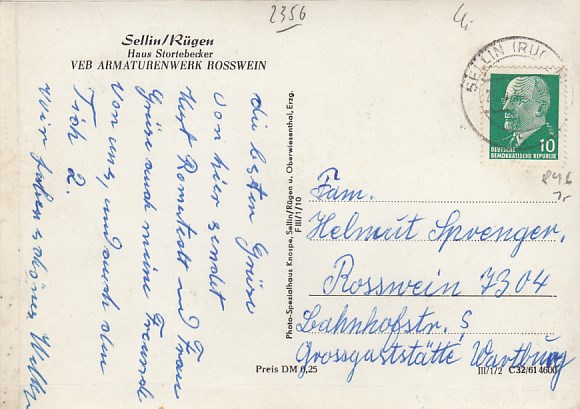 2356
Sellin/Rügen
Haus Stortebecker
VEB ARMATURENWERK ROSSWEIN
die besten Grüse
von hier sendet
Kurt und Frau
Grüse auch meine Freunde
von uns, und auch den
Tisch 2.
Wir haben schönes
Photo-Spezialhaus Knospe, Sellin/Rügen u. Oberwiesenthal, Erzg.
F III/1/10
SELLIN (RÜG
10
DEUTSCHE
DEMOKRATISCHE REPUBLIK
Fam.
Helmut Sprenger,
Rosswein 7304
Bahnhofstr. 5
Grossgaststätte Wartburg
Preis DM 0,25
III/1/2 C 32/61 4600